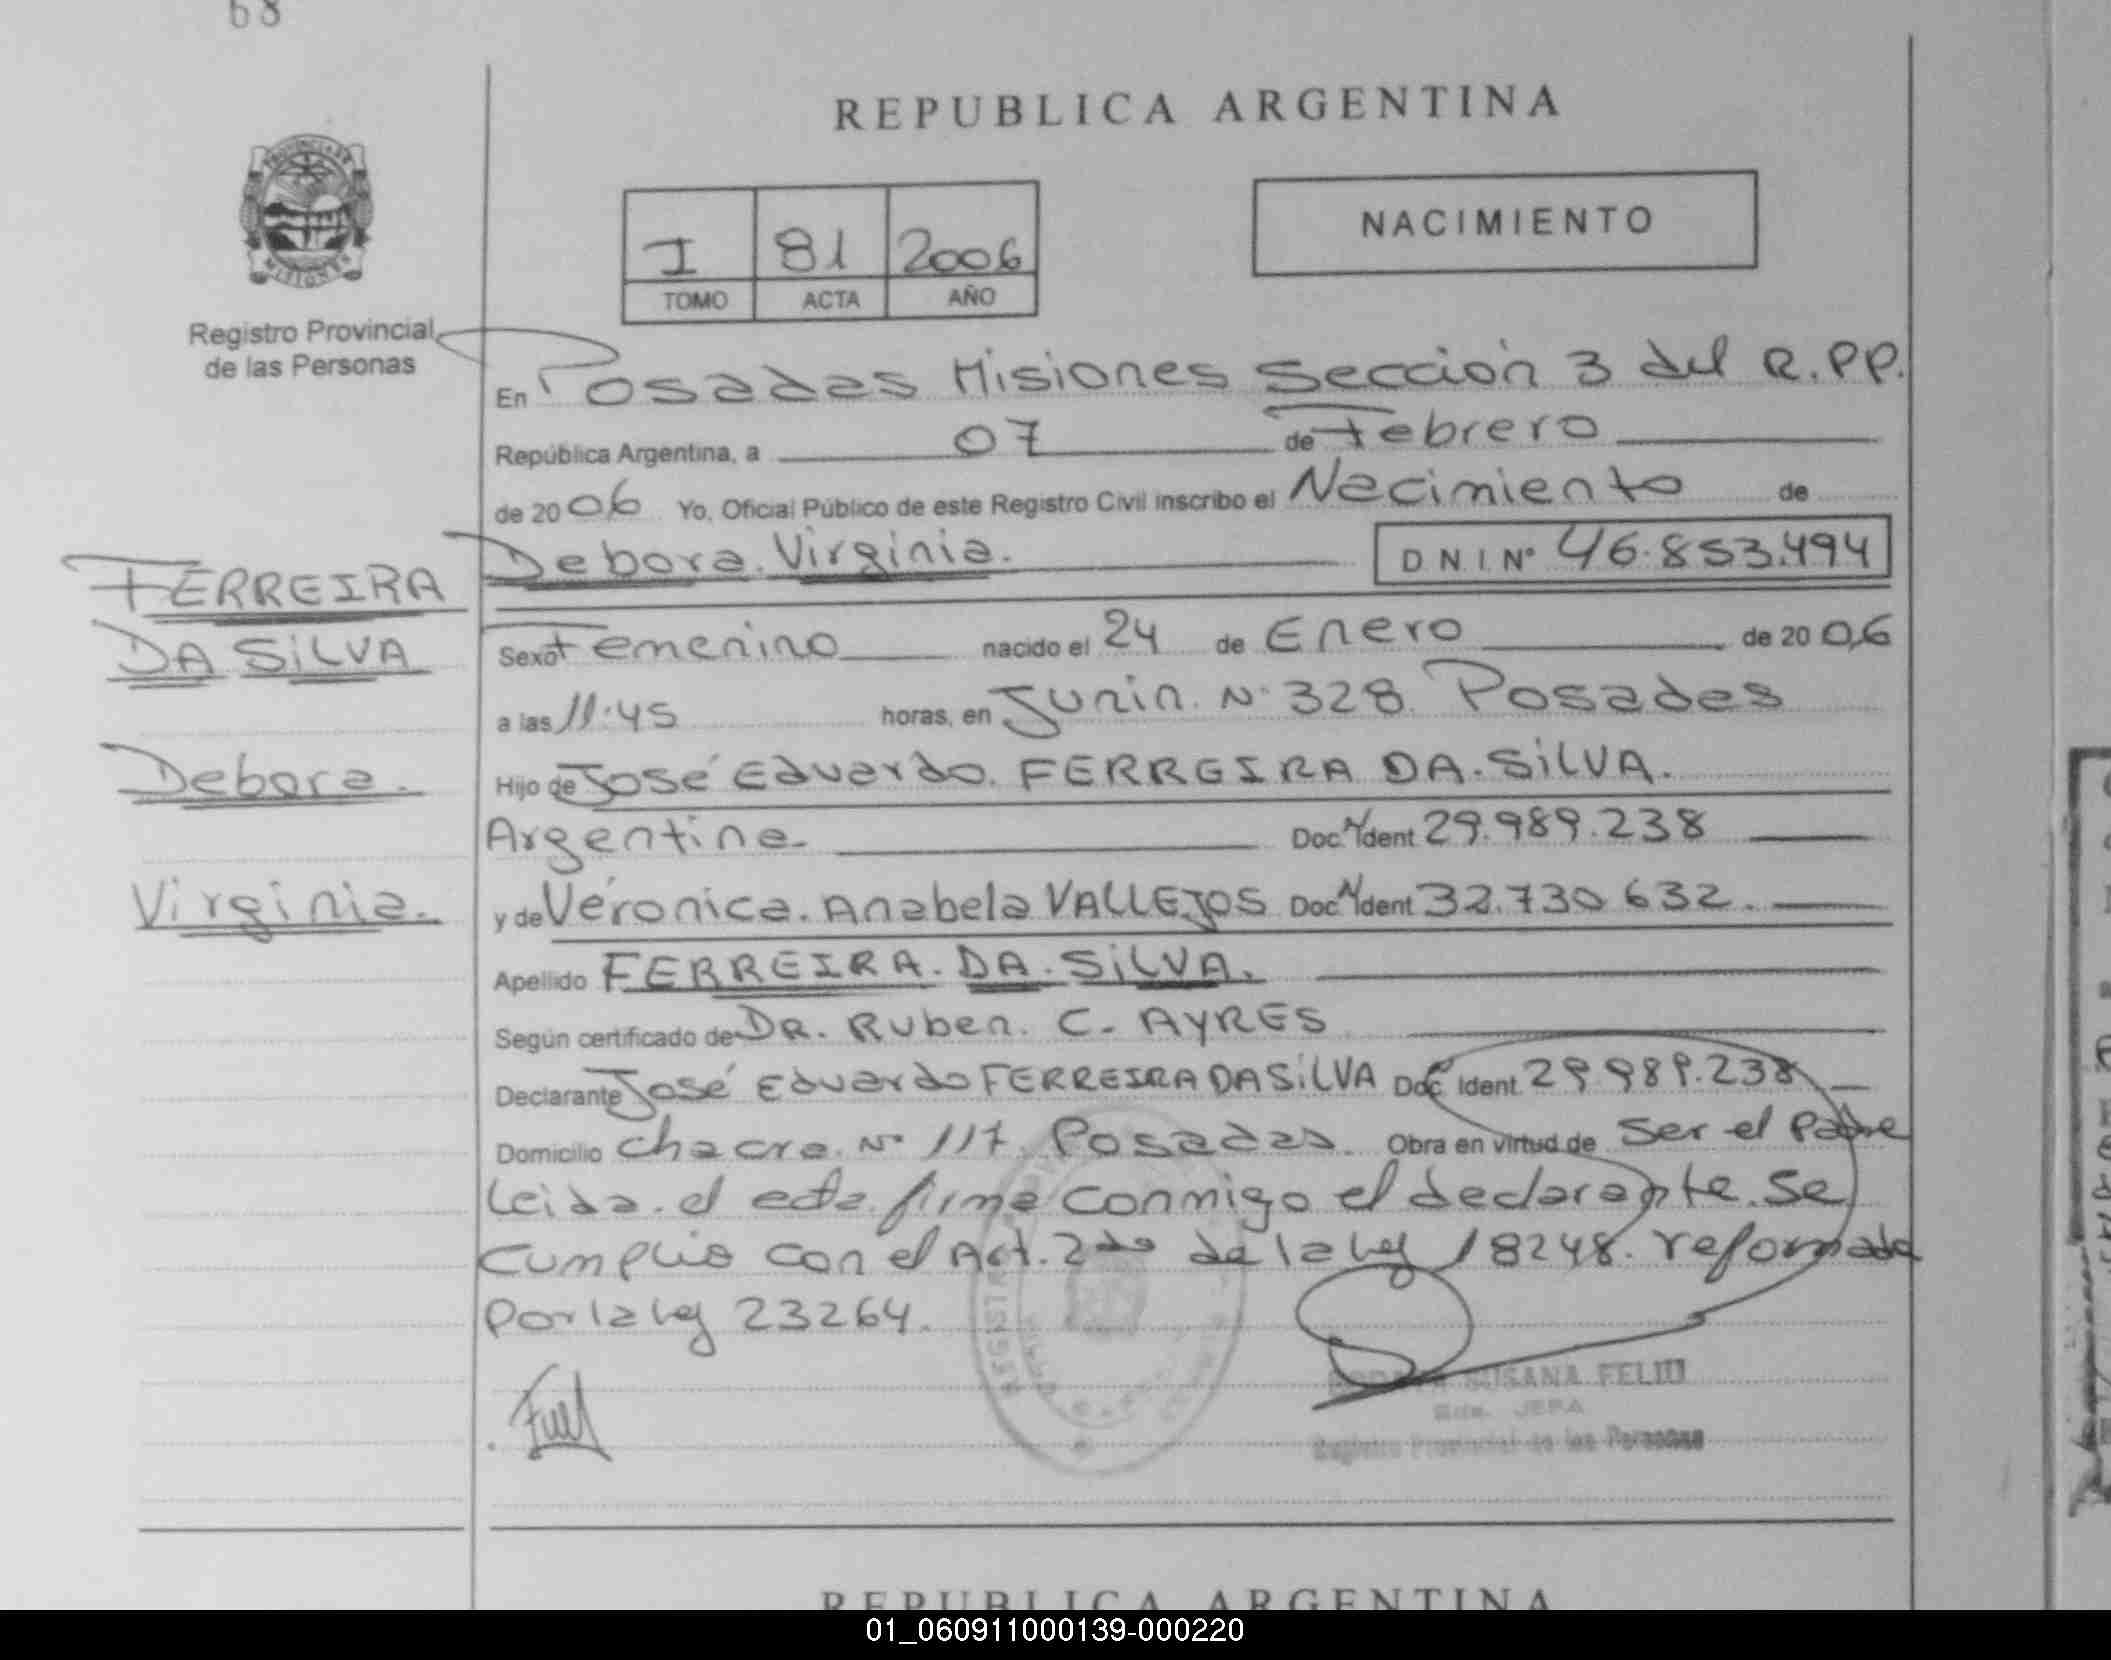 68
REPUBLICA ARGENTINA
PROVINCIA DE
MISIONES
Registro Provincial
de las Personas
I 81 2006
TOMO ACTA AÑO
NACIMIENTO
En Posadas Misiones Sección 3 del R.PP.
República Argentina, a 07 de Febrero
de 2006 Yo, Oficial Público de este Registro Civil inscribo el Nacimiento de
Debora Virginia. D.N.I. Nº 46.853.494
FERREIRA
DA SiLVA
Debora.
Virginia.
Sexo Femenino nacido el 24 de Enero de 2006
a las 11.45 horas, en Junin. Nº 328. Posadas
Hijo de José Eduardo. FERREIRA DA. SiLVA.
Argentina. Doc. Ident 29.989.238
y de Véronica. Anabela VALLEJOS Doc. Ident 32.730 632.
Apellido FERREIRA. DA. SiLVA.
Según certificado de DR. Ruben. C. AYRES
Declarante José Eduardo FERREIRA DA SiLVA Doc. Ident. 29.989.238
Domicilio chacra. Nº 117. Posadas. Obra en virtud de ser el Padre
Leida. el acta. firma conmigo el declarante. se
cumplio con el Art. 2do de la ley 18248. reformada
por la ley 23264.
SUSANA FELIU
JEFA
Registro Provincial de las Personas
REPUBLICA ARGENTINA
01_060911000139-000220